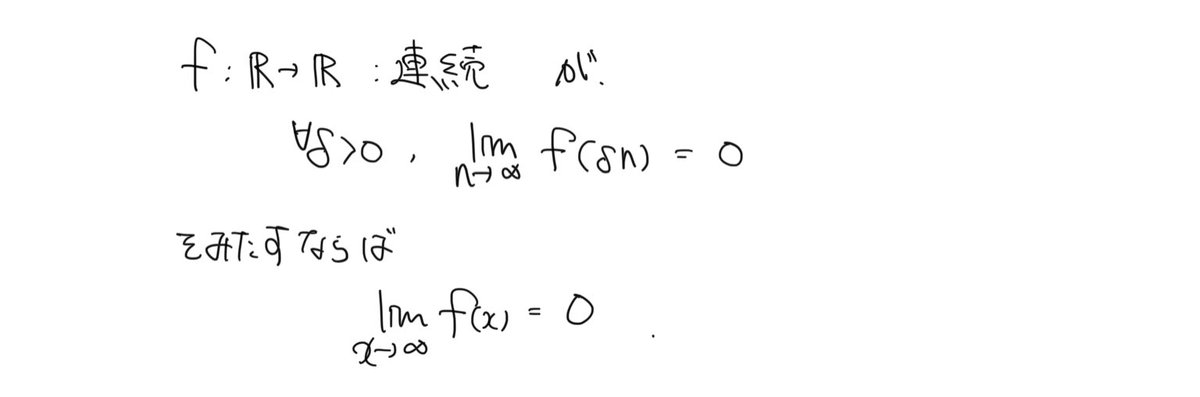 f : ℝ→ℝ : 連続 が
∀δ>0 , lim_{n→∞} f(δn) = 0
をみたすならば
lim_{x→∞} f(x) = 0 .